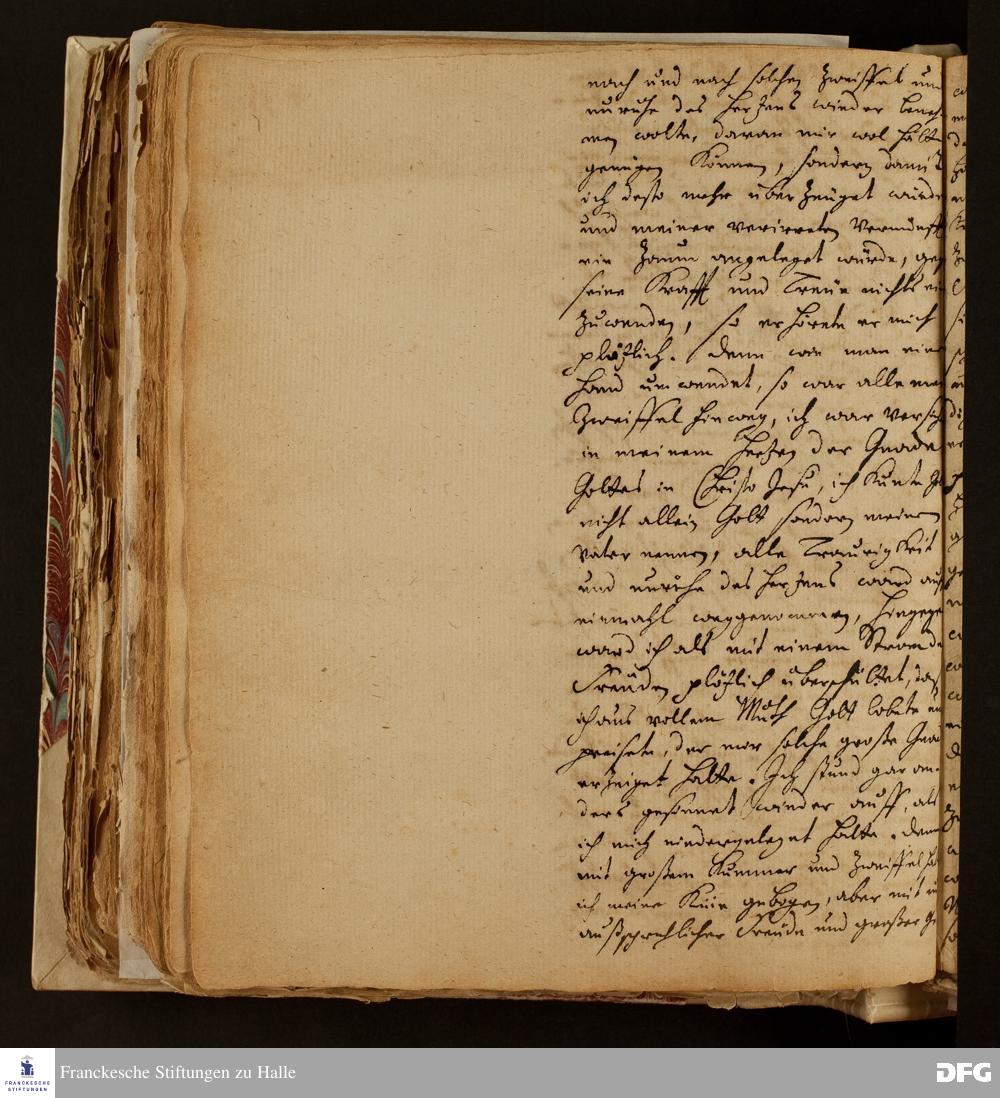 nach und nach solchen Zweiffel und
unruhe des Hertzens wieder beneh-
men wolte, daran mir wol hätte
genügen können, sondern damit
ich desto mehr überzeuget würde
und meiner verirreten Vernunfft
ein Zaum angeleget würde, gegen
seine Krafft und Treue nichts ein
zuwenden, so erhörete er mich
plötzlich. Denn wie man eine
Hand umwendet, so war alle mein
Zweiffel hinweg, ich war versich
in meinem Hertzen der Gnade
Gottes in Christo Jesu, ich kunte
nicht allein Gott sondern meinen
Vater nennen, alle Traurigkeit
und unruhe des Hertzens ward auf
einmahl weggenommen, hingegen
ward ich als mit einem Strom der
Freuden plötzlich überschüttet, daß
ich aus vollem Muth Gott lobete und
preisete, der mir solche große Gnade
erzeiget hatte. Ich stund gar an-
ders gesinnet wieder auff, als
ich mich niedergeleget hatte. Denn
mit großem Kummer und Zweiffel hat
ich meine Knie gebogen, aber mit un
außsprechlicher Freude und großer Ge
Franckesche Stiftungen zu Halle
FRANCKESCHE
STIFTUNGEN
DFG